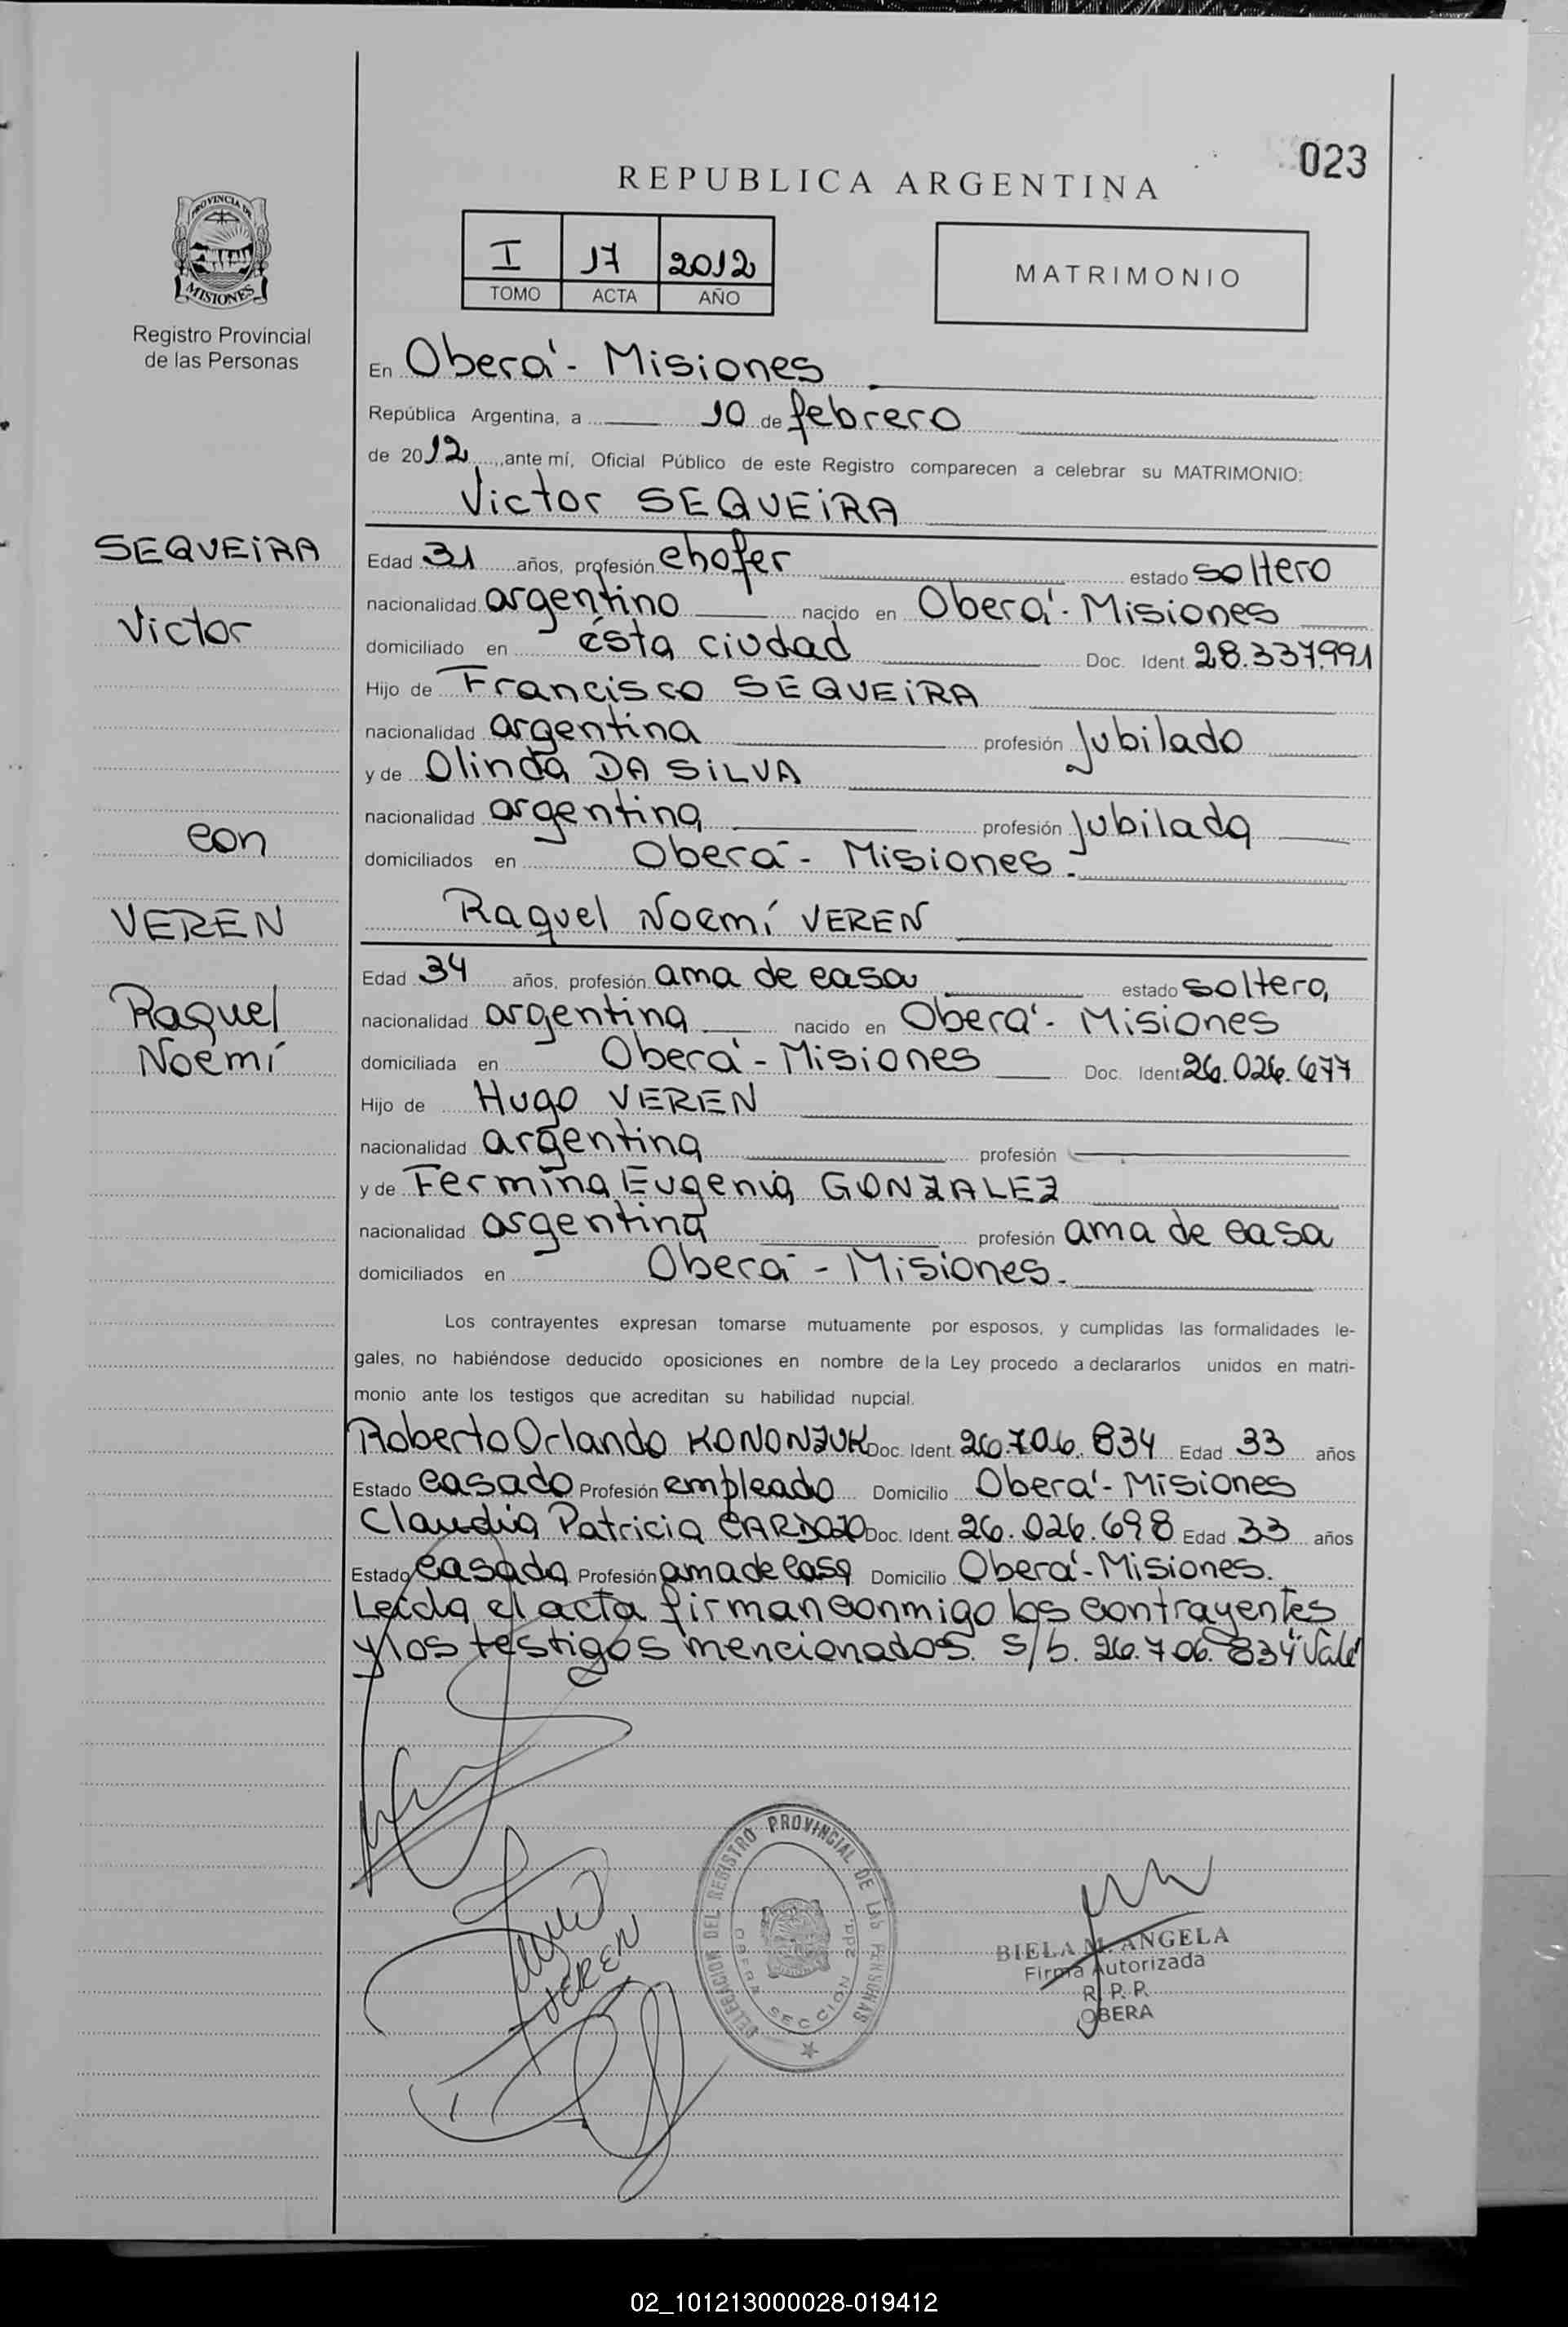 023
REPUBLICA ARGENTINA
PROVINCIA DE
MISIONES
Registro Provincial
de las Personas
I 17 2012
TOMO ACTA AÑO
MATRIMONIO
En Oberá - Misiones
República Argentina, a 10 de febrero
de 2012, ante mí, Oficial Público de este Registro comparecen a celebrar su MATRIMONIO:
Victor SEQUEiRA
SEQUEiRA
Victor
con
VEREN
Raquel
Noemí
Edad 31 años, profesión chofer estado soltero
nacionalidad argentino nacido en Oberá - Misiones
domiciliado en ésta ciudad Doc. Ident. 28.337.991
Hijo de Francisco SEQUEiRA
nacionalidad argentina profesión Jubilado
y de Olinda DA SiLVA
nacionalidad argentina profesión Jubilada
domiciliados en Oberá - Misiones.-
Raquel Noemí VEREN
Edad 34 años, profesión ama de casa estado soltera
nacionalidad argentina nacido en Oberá - Misiones
domiciliada en Oberá - Misiones Doc. Ident. 26.026.677
Hijo de Hugo VEREN
nacionalidad argentina profesión
y de Fermina Eugenia GONZALEZ
nacionalidad argentina profesión ama de casa
domiciliados en Oberá - Misiones.
Los contrayentes expresan tomarse mutuamente por esposos, y cumplidas las formalidades le-
gales, no habiéndose deducido oposiciones en nombre de la Ley procedo a declararlos unidos en matri-
monio ante los testigos que acreditan su habilidad nupcial.
Roberto Orlando KONONZUK Doc. Ident. 26.706.834 Edad 33 años
Estado casado Profesión empleado Domicilio Oberá - Misiones
Claudia Patricia CARDOZO Doc. Ident. 26.026.698 Edad 33 años
Estado casada Profesión ama de casa Domicilio Oberá - Misiones.
Leída el acta firman conmigo los contrayentes
y los testigos mencionados. s/b. 26.706.834 "Vale"
VEREN
DELEGACION DEL REGISTRO PROVINCIAL DE LAS PERSONAS
OBERA SECCION 2da.
BIELA M. ANGELA
Firma Autorizada
R. P. P.
OBERA
02_101213000028-019412